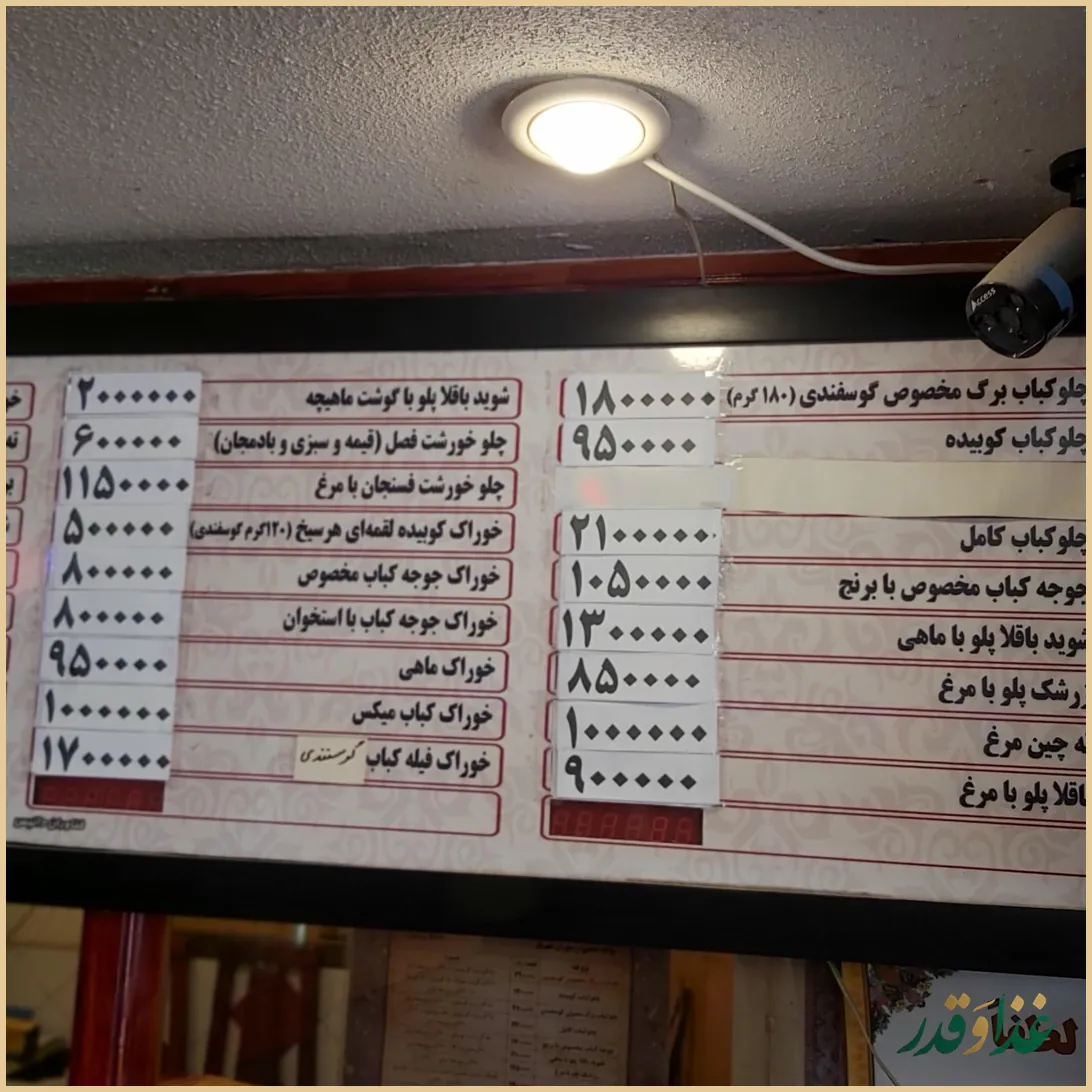 چلوکباب برگ مخصوص گوسفندی (۱۸۰ گرم) ۱۸۰۰۰۰۰
چلوکباب کوبیده ۹۵۰۰۰۰
چلوکباب کامل ۲۱۰۰۰۰۰
جوجه کباب مخصوص با برنج ۱۰۵۰۰۰۰
شوید باقلا پلو با ماهی ۱۳۰۰۰۰۰
زرشک پلو با مرغ ۸۵۰۰۰۰
ته چین مرغ ۱۰۰۰۰۰۰
باقلا پلو با مرغ ۹۰۰۰۰۰
شوید باقلا پلو با گوشت ماهیچه ۲۰۰۰۰۰۰
چلو خورشت فصل (قیمه و سبزی و بادمجان) ۶۰۰۰۰۰
چلو خورشت فسنجان با مرغ ۱۱۵۰۰۰۰
خوراک کوبیده لقمه‌ای هرسیخ (۱۲۰گرم گوسفندی) ۵۰۰۰۰۰
خوراک جوجه کباب مخصوص ۸۰۰۰۰۰
خوراک جوجه کباب با استخوان ۸۰۰۰۰۰
خوراک ماهی ۹۵۰۰۰۰
خوراک کباب میکس ۱۰۰۰۰۰۰
خوراک فیله کباب گوسفندی ۱۷۰۰۰۰۰
Access
غذا و قدر